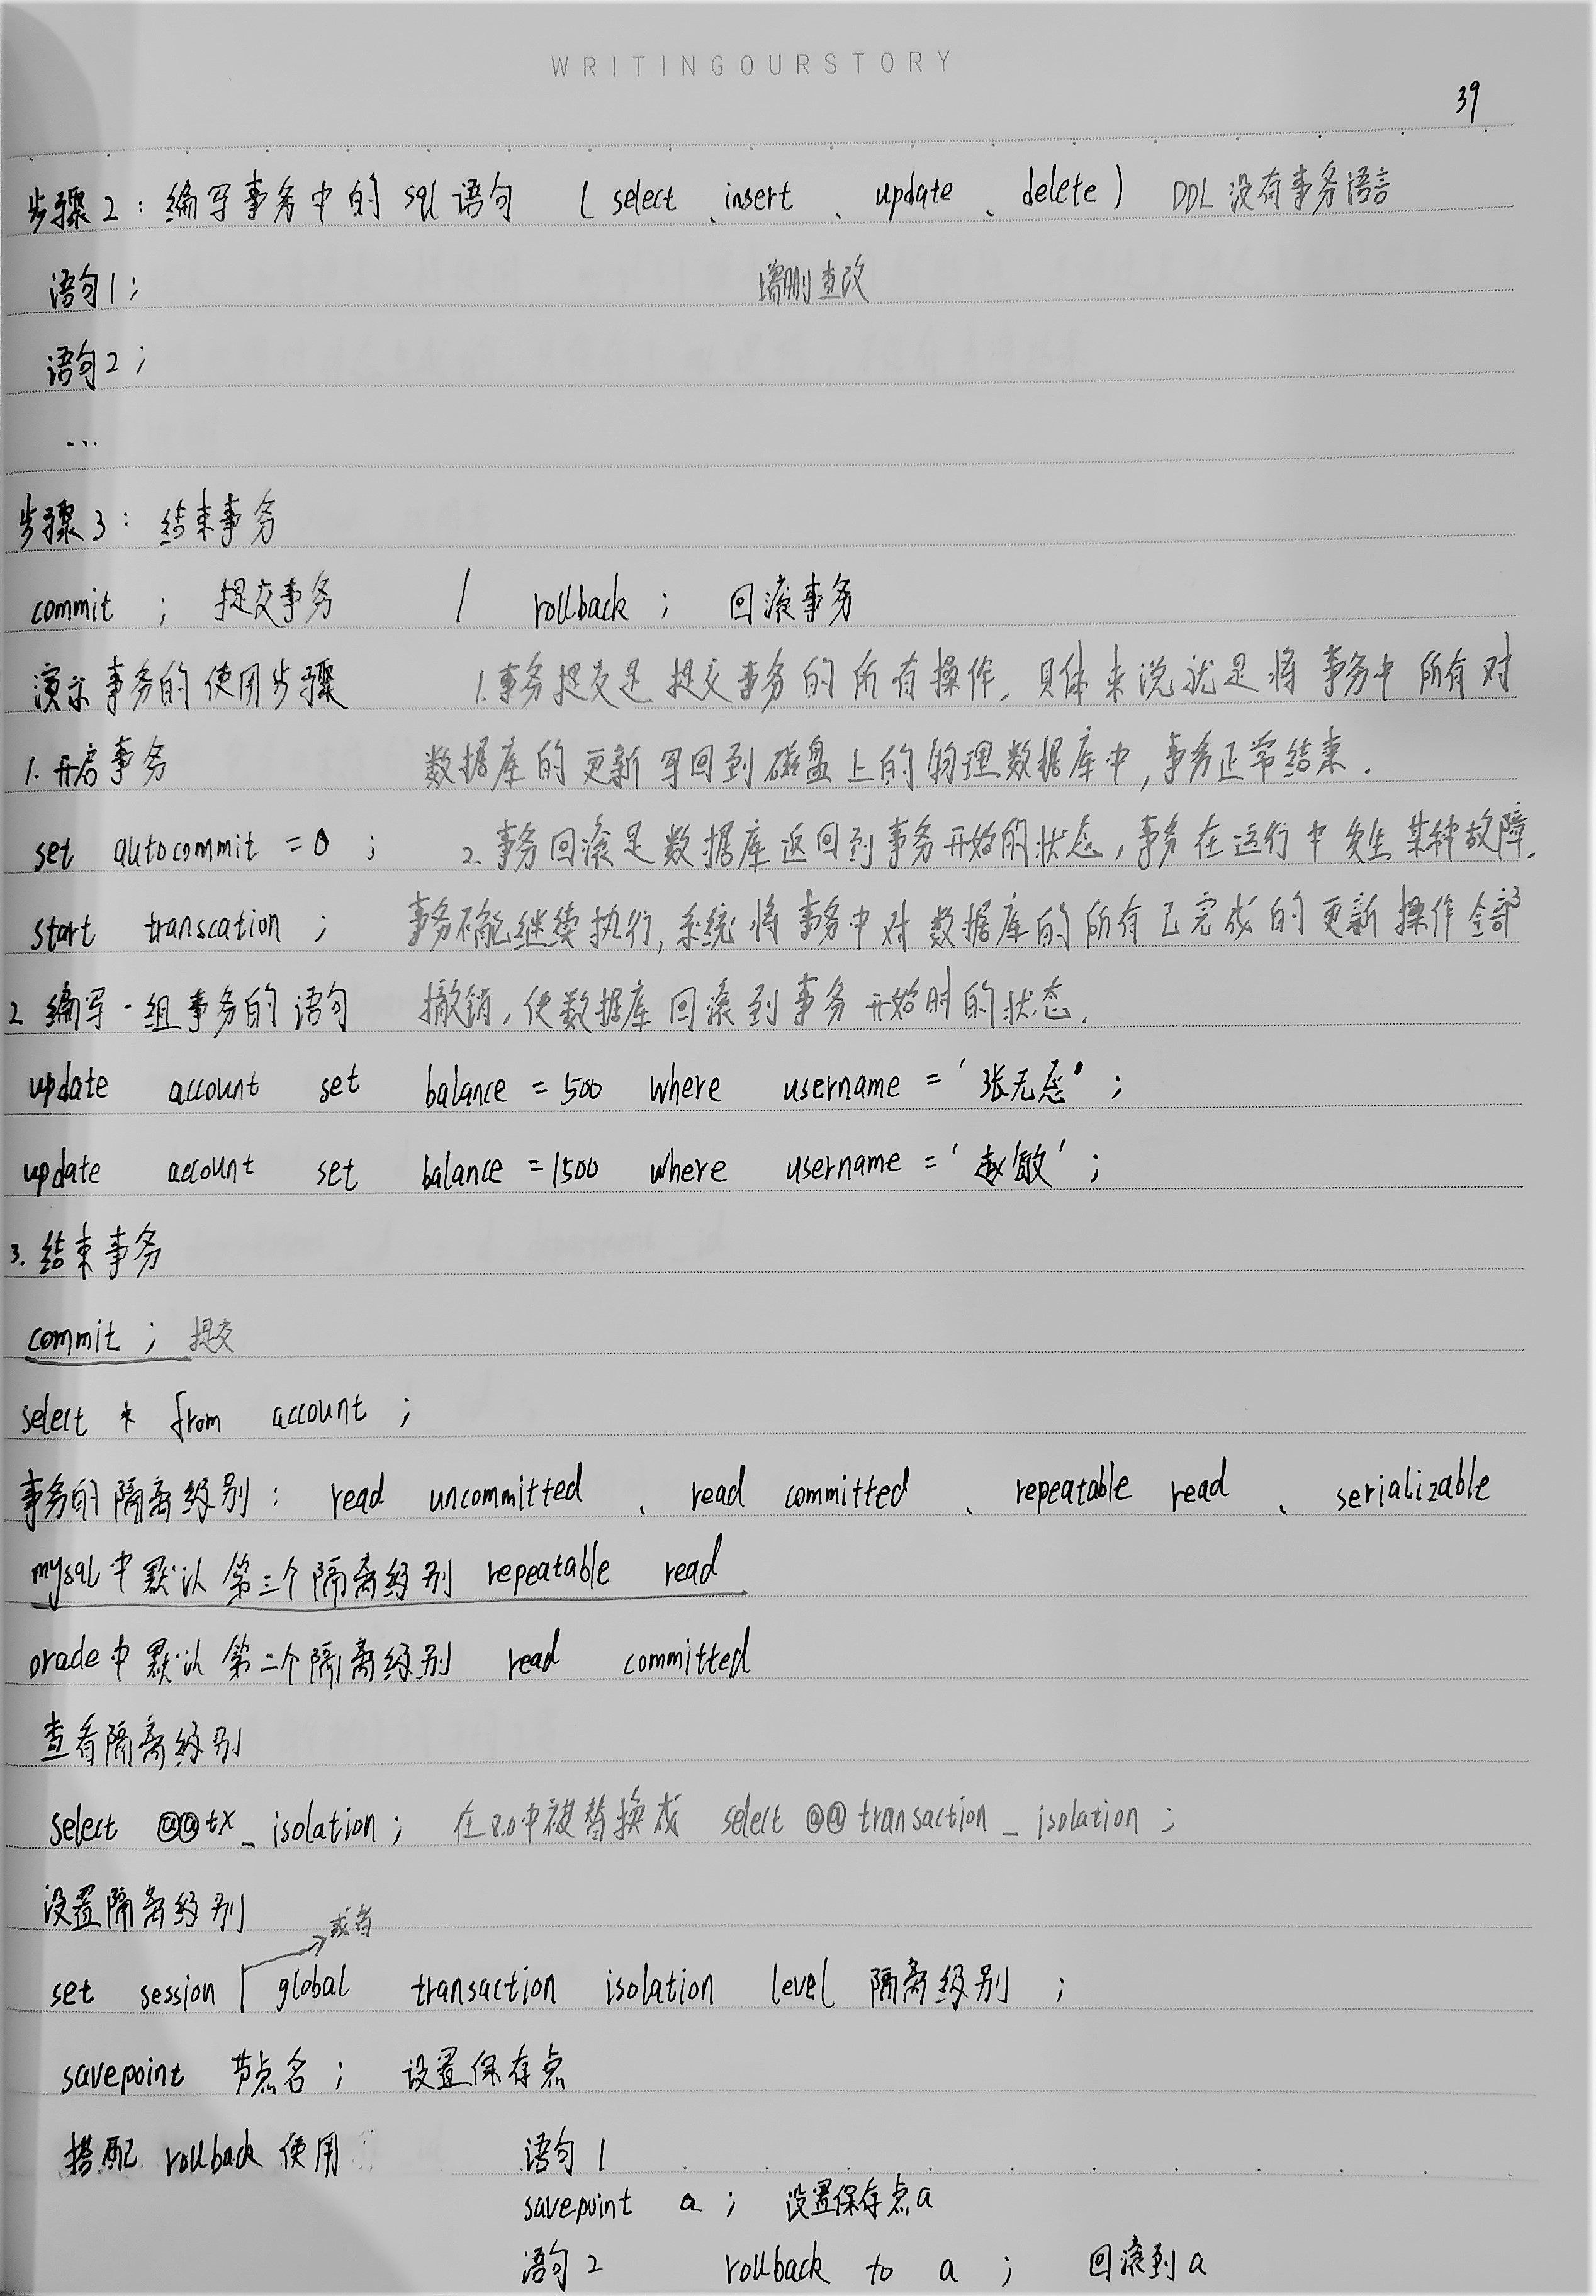 WRITINGOURSTORY
39
步骤2：编写事务中的sql语句 （select 、insert 、update 、delete） DDL没有事务语言
语句1； 增删查改
语句2；
...
步骤3：结束事务
commit ； 提交事务 / rollback ； 回滚事务
演示事务的使用步骤 1.事务提交是提交事务的所有操作，具体来说就是将事务中所有对
1.开启事务 数据库的更新写回到磁盘上的物理数据库中，事务正常结束．
set autocommit =0 ； 2.事务回滚是数据库返回到事务开始的状态，事务在运行中发生某种故障，
start transcation ； 事务不能继续执行，系统将事务中对数据库的所有已完成的更新操作全部
2 编写一组事务的语句 撤销，使数据库回滚到事务开始时的状态．
update account set balance =500 where username ='张无忌'；
update account set balance =1500 where username ='赵敏'；
3.结束事务
commit ；提交
select * from account ；
事务的隔离级别： read uncommitted 、 read committed 、 repeatable read 、 serializable
mysql中默认第三个隔离级别 repeatable read
oracle中默认第二个隔离级别 read committed
查看隔离级别
select @@tx_isolation； 在8.0中被替换成 select @@transaction_isolation；
设置隔离级别
或者
set session | global transaction isolation level 隔离级别 ；
savepoint 节点名； 设置保存点
搭配 rollback 使用 语句1
savepoint a； 设置保存点a
语句2 rollback to a ； 回滚到a